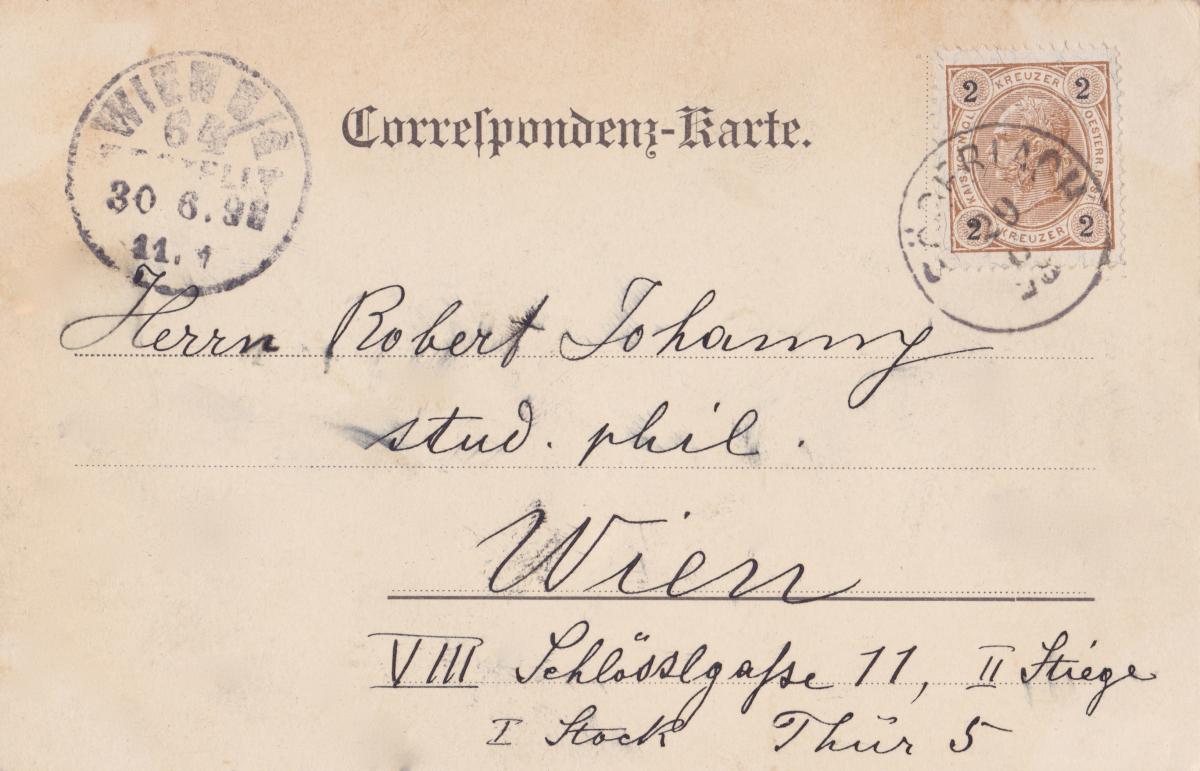 Correspondenz-Karte.
WIEN 8/1
64
BESTELLT
30 6.98
11.
2 KREUZER 2
KAIS. KÖN.
OESTERR. POST
2 KREUZER 2
29
Herrn Robert Johanny
stud. phil.
Wien
VIII Schlösslgasse 11, II Stiege
I Stock Thür 5